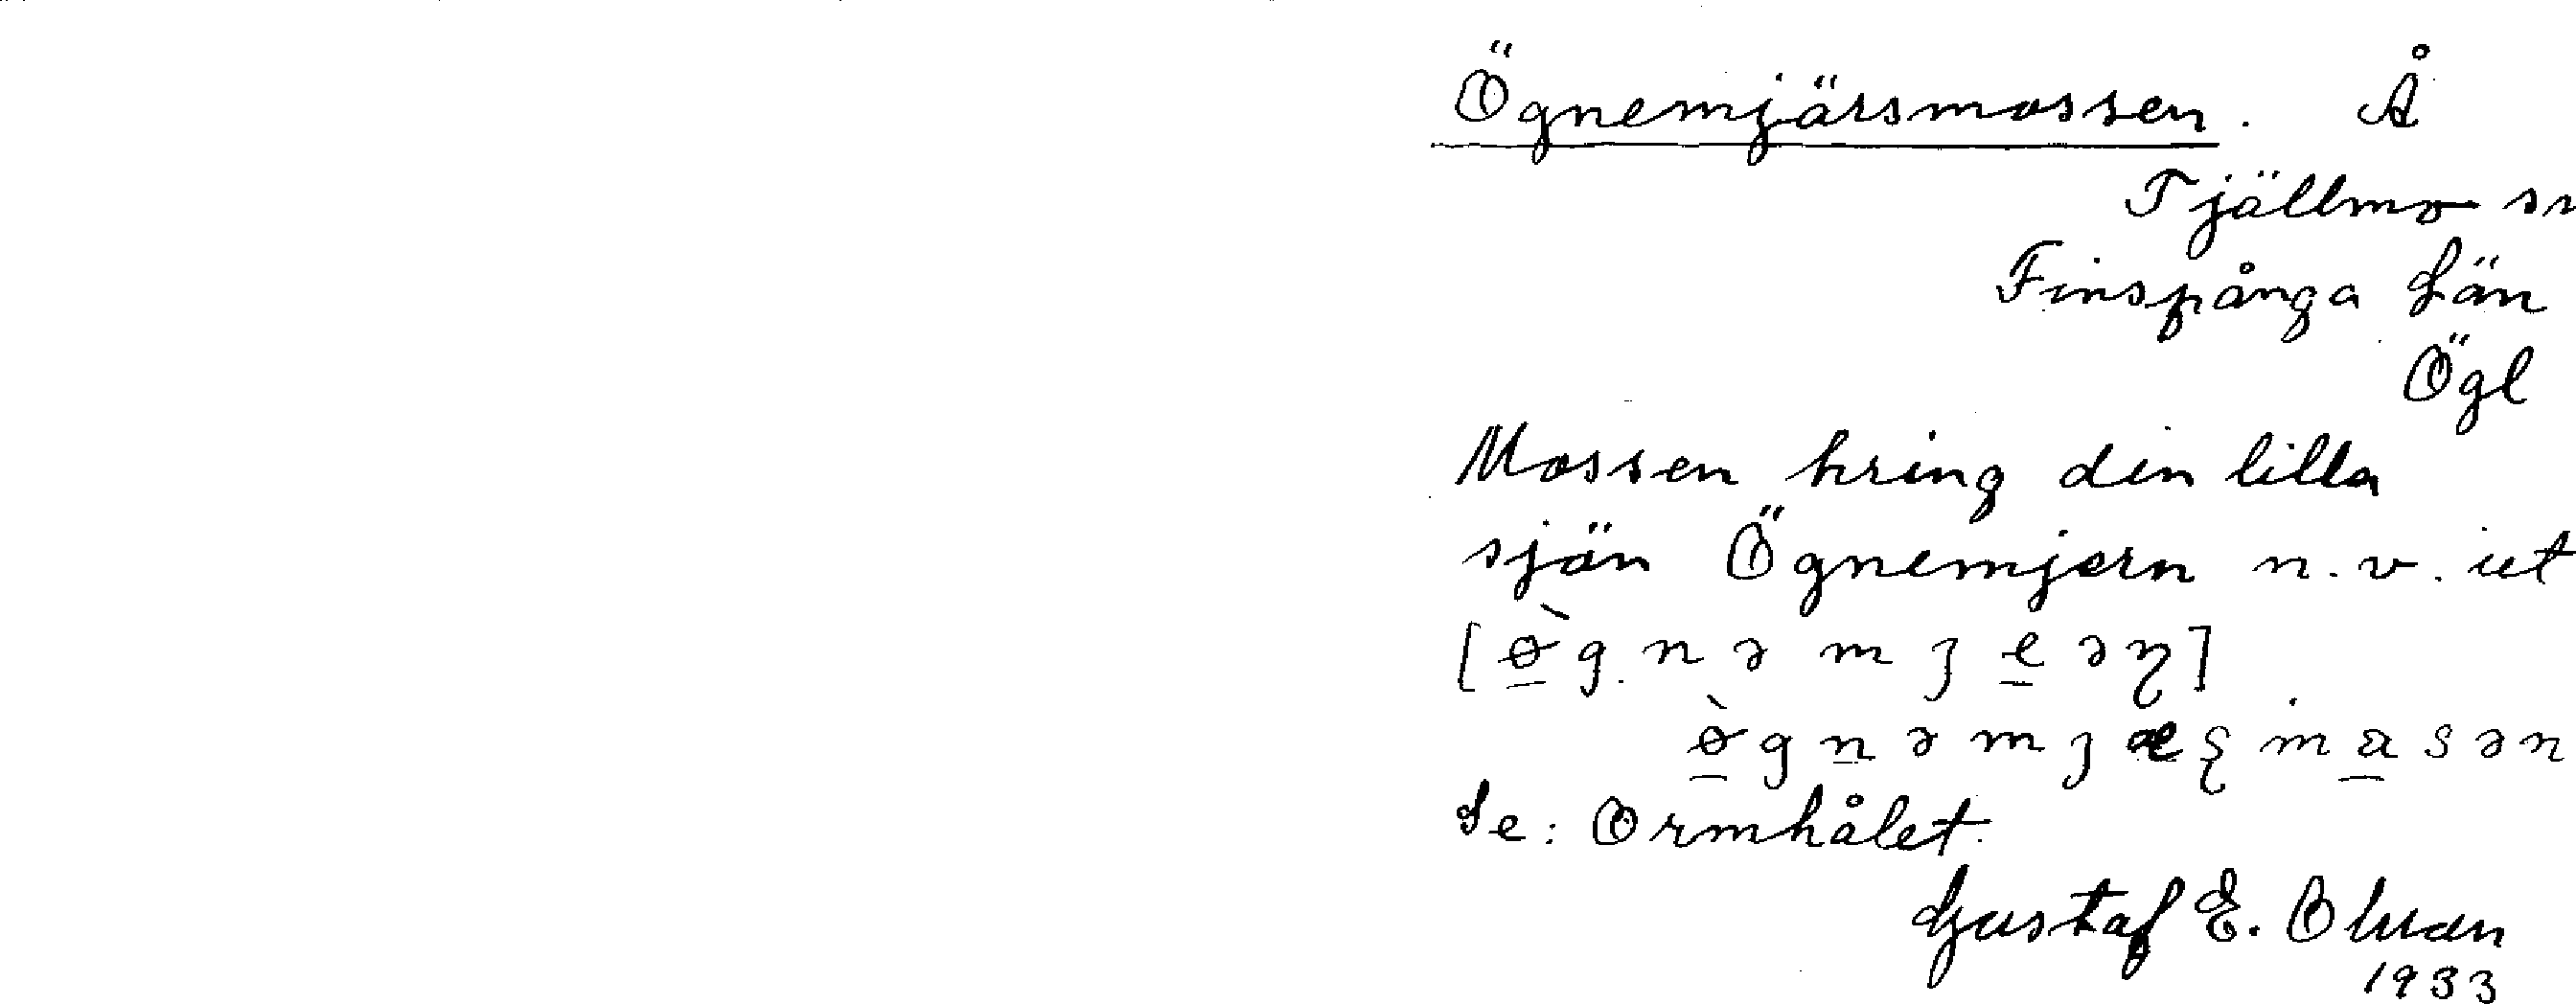 Ögnemjärsmossen. Å
Tjällmo sn
Finspånga Län
Ögl
Mossen kring den lilla
sjön Ögnemjern n.v. ut
[ø̀gnəmȷeəɳ]
ø̀gnəmȷæʂmasən
Se: Ormhålet.
Gustaf E.
1933